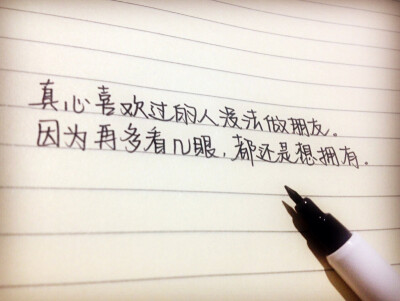 真心喜欢过的人没法做朋友。
因为再多看几眼,都还是想拥有.